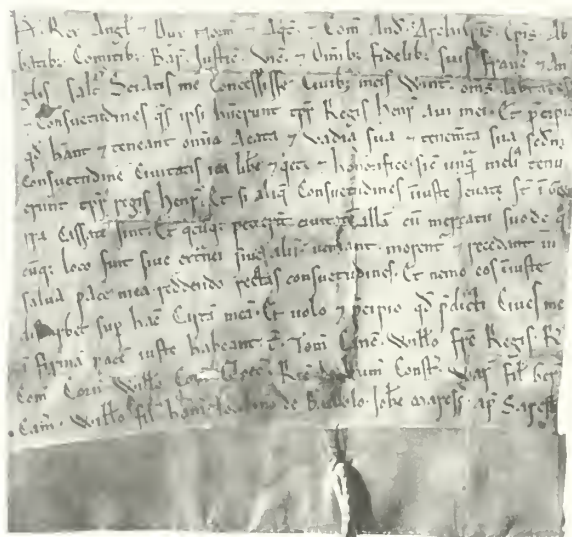 H. Rex Angl' ⁊ Dux Norm' ⁊ Aqt' ⁊ Com' And'. Archiep̄is. Ep̄is. Ab
batib; Comitib; Bar' Justic'. Vic'. ⁊ Om̄ib; fidelib; suis franc' ⁊ An
glis salt'. Sciatis me Concessisse Civib; meis Wint'. om̄s libtates
⁊ Consuetudines q̄s ipsi habuerunt tp̄r Regis henr' avi mei. Et p̄cipio
qd' hānt ⁊ teneant om̄ia Acata ⁊ Vadia sua ⁊ tenem̄ta sua scdm̄
Consuetudinē Civitatis ita libe ⁊ q̄ete ⁊ honorifice sic' unq̄ meli' tenu
erunt tp̄r regis henr'. Et si aliq̄ Consuetudines iniuste levate st̄ i
Cassate sint. Et q̄cuq; petierit civit̄tē illā cū mercatu suo de q̄
cuq; loco sint sive ext̄nei sive alii. veniant. morent' ⁊ recedant in
salva pace mea reddendo rectas consuetudines. Et nemo eos iniuste
disturbet sup hāc Cartā meā. Et volo ⁊ p̄cipio qd' p̄dicti Cives mei
firmā pacē iuste habeant. T'. Tom' Canc'. Willo fr̄e Regis. R'
Com' Corn'. Willo Com' Ric' de hum' Const'. War' fil' Ger'
Cam'. Willo fil' ham'. Jocelino de Baillolo. Johe Maresc'. ap'